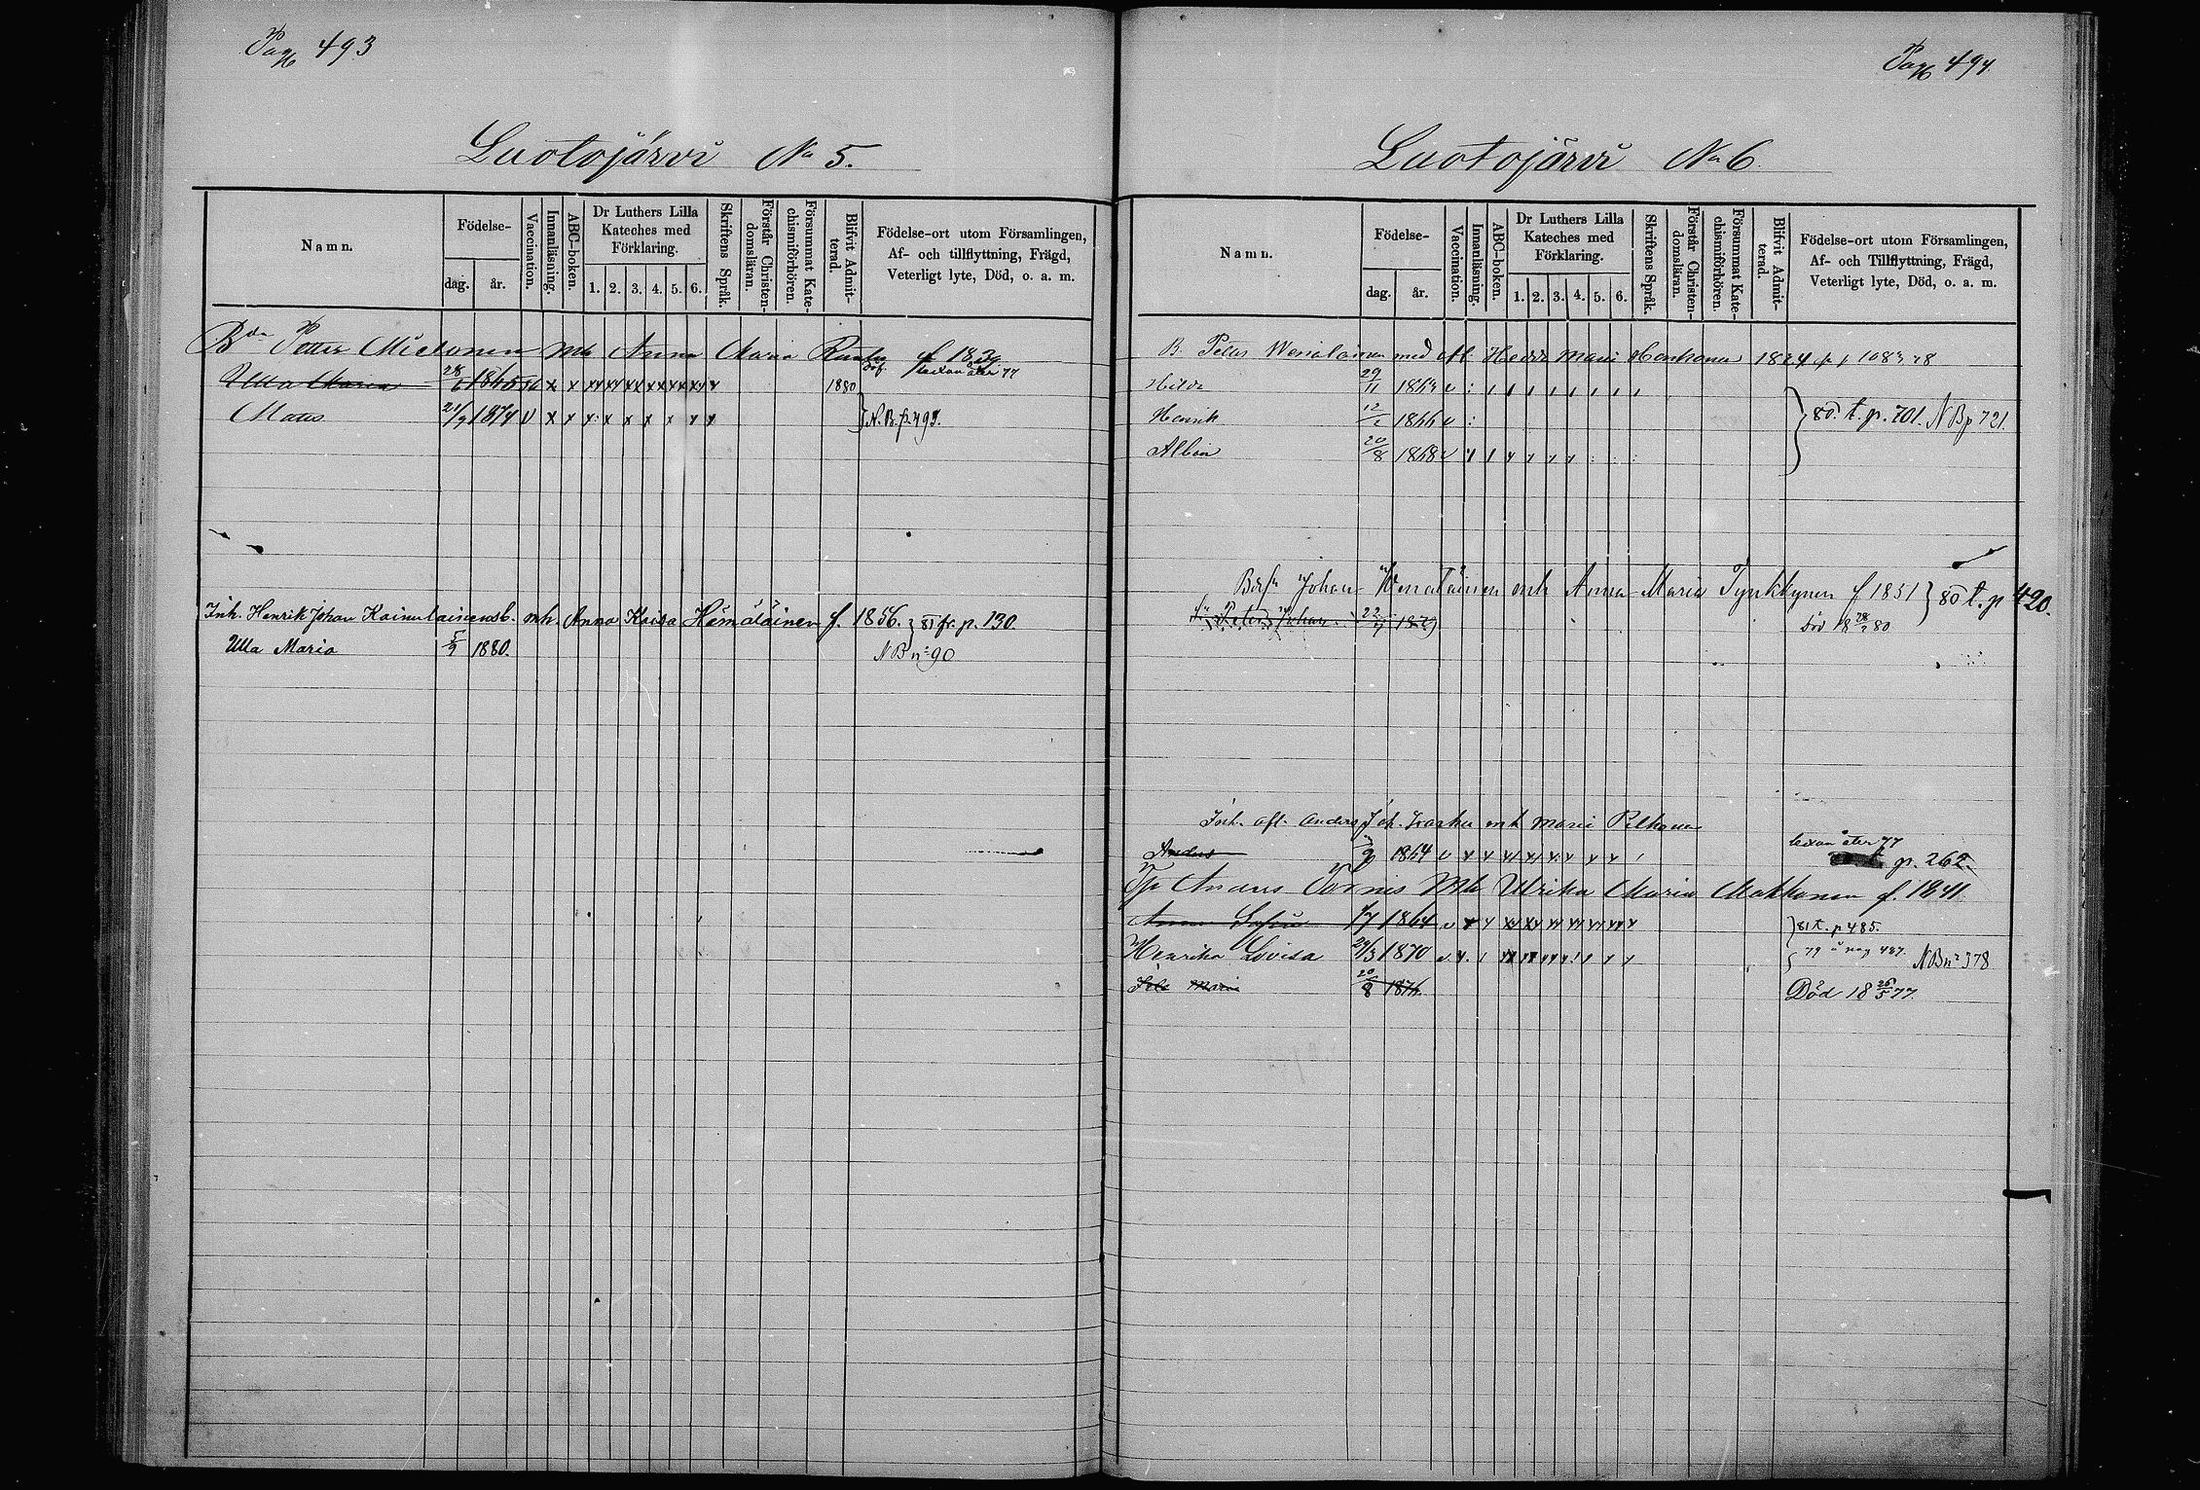 Pag 493
Luotojärvi No 5.
Namn.
Födelse-
dag.
år.
Vaccination.
Innanläsning.
ABC-boken.
Dr Luthers Lilla Kateches med Förklaring.
1. 2. 3. 4. 5. 6.
Skriftens Språk.
Förstår Christendomsläran.
Försummat Katechismiförhören.
Blifvit Admitterad.
Födelse-ort utom Församlingen, Af- och tillflyttning, Frägd, Veterligt lyte, Död, o. a. m.
Petter Mh Anna Maria f 18
Ulla Maria 28/6 1865 1880
Mats 21/9 1874 v N.B. p. 493.
Inh. Henrik Johan Kainulainens b. mh. Anna Kaisa Hämäläinen f. 1856. } 81 fr. p. 130.
Ulla Maria 5/5 1880. NB nº 90
Pag 494
Luotojärvi No 6.
Namn.
Födelse-
dag.
år.
Vaccination.
Innanläsning.
ABC-boken.
Dr Luthers Lilla Kateches med Förklaring.
1. 2. 3. 4. 5. 6.
Skriftens Språk.
Förstår Christendomsläran.
Försummat Katechismiförhören.
Blifvit Admitterad.
Födelse-ort utom Församlingen, Af- och Tillflyttning, Frägd, Veterligt lyte, Död, o. a. m.
B. Petter med Maria 1824
Hilda 29/11 1863 v
Henrik 12/2 1866 v } 80. t. p. 701. NB p 721.
Albin 20/8 1868 v
Johan mh Anna Maria Tynkkynen f 1851 } 80 t. p 420.
Peter Johan 22/7 1879 död 18 28/2 80
Inh. afl. Anders Joh. mh Maria
Anders 9 1864 v p. 262.
Anders Tornis Mh Ulrika Maria Makkonen f. 1841.
Anna 1864 v } 81 t. p 485.
Henrika Lovisa 29/3 1870 v 79 NB nº 378
Maria 20/8 1876 Död 18 26/5 77.